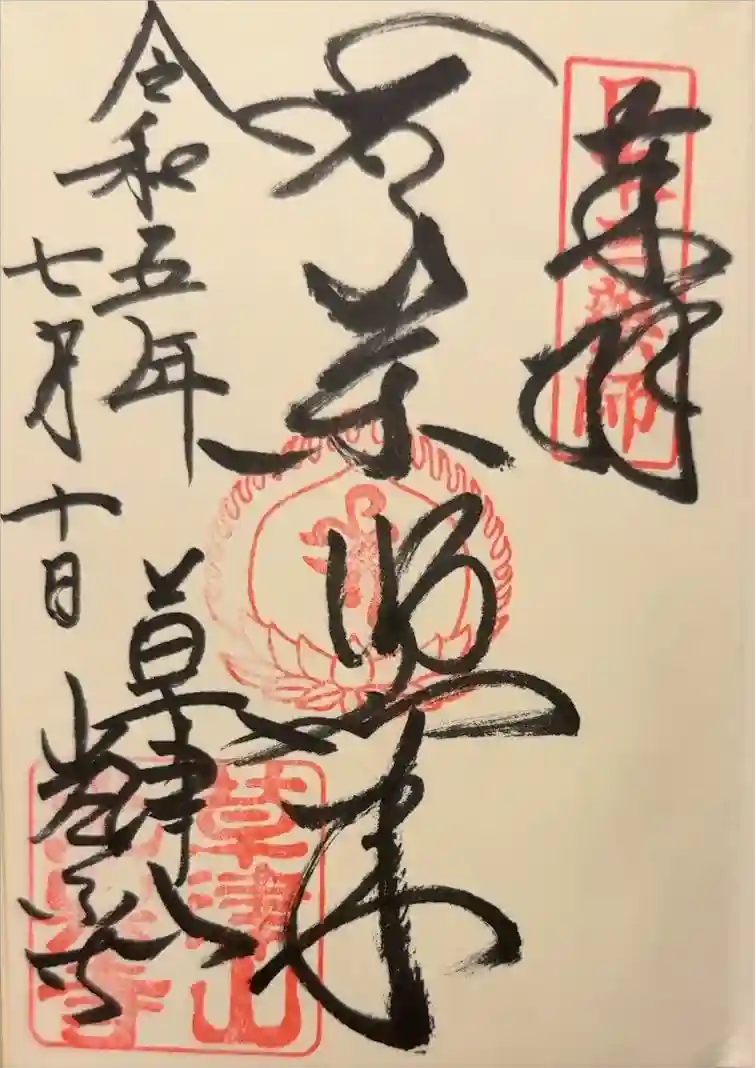 奉拝
日本三薬師
薬師如来
令和五年
七月十日
草津山
光泉寺
草津山
光泉寺